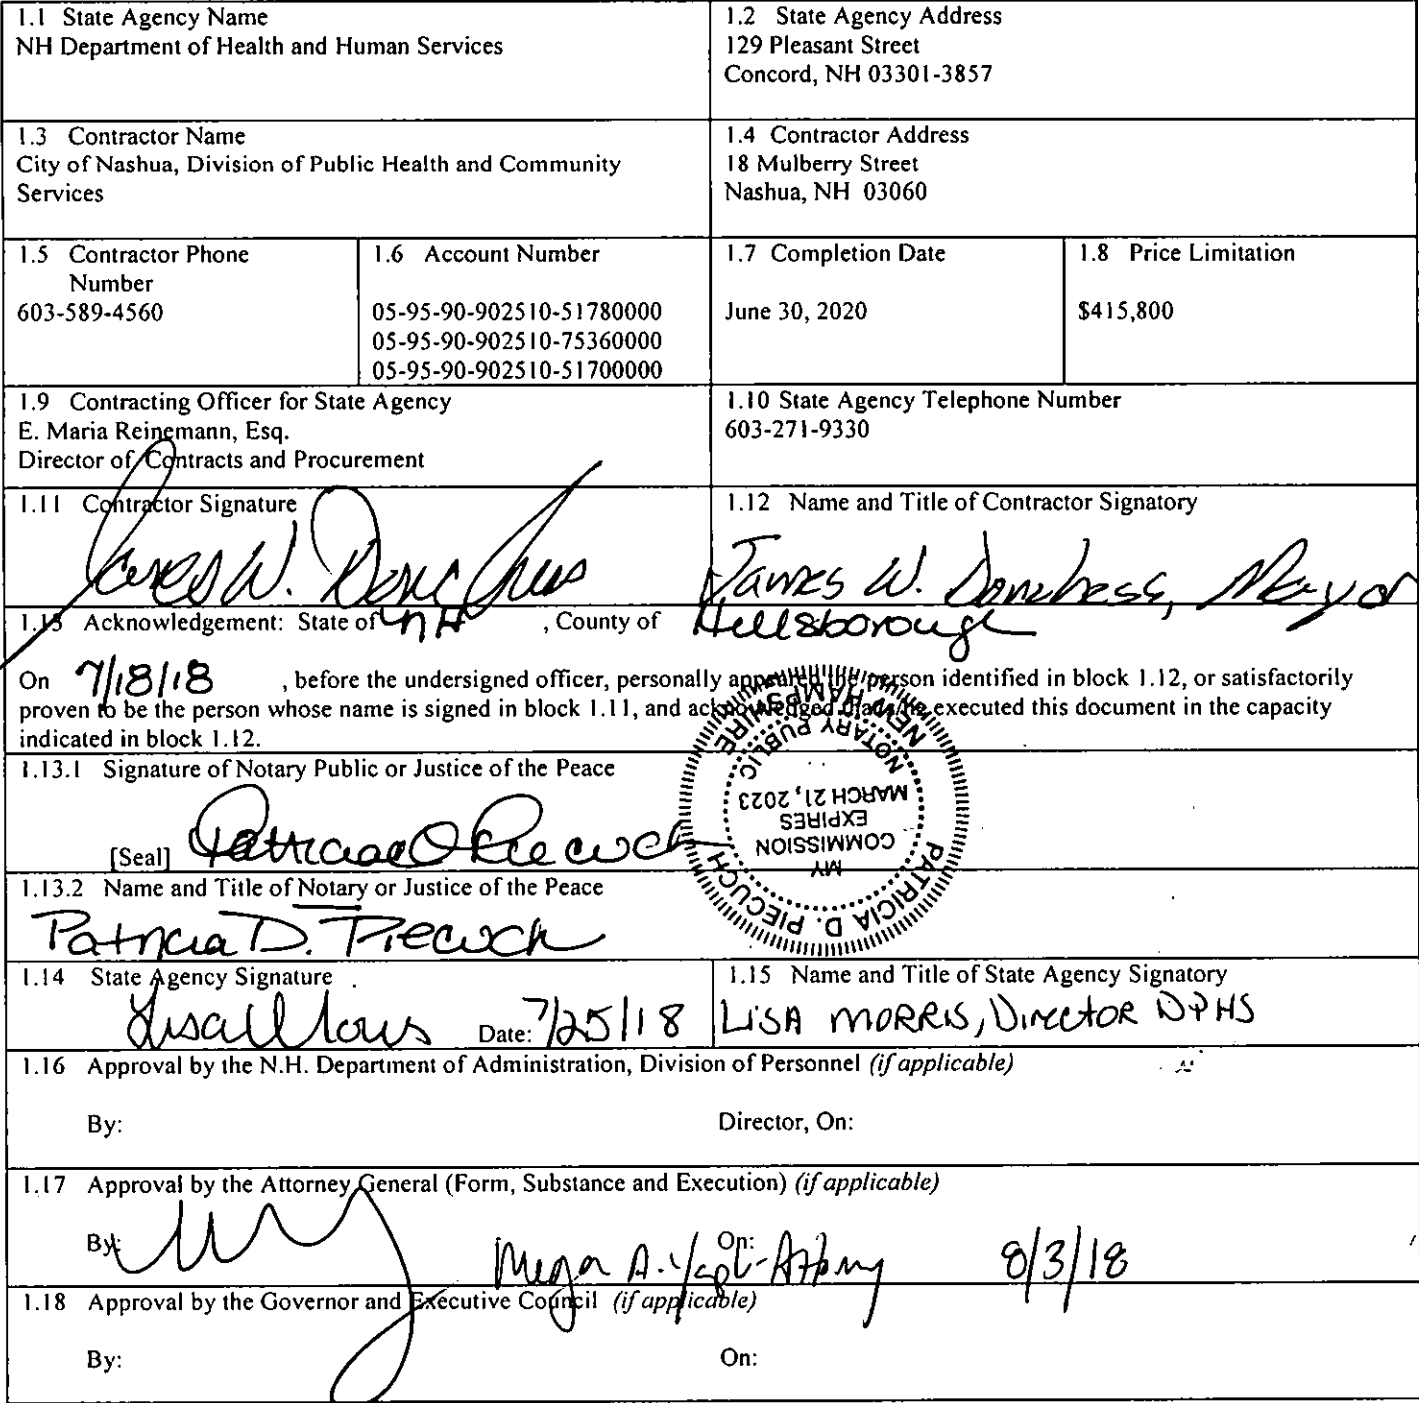 1.1 State Agency Name
NH Department of Health and Human Services
1.2 State Agency Address
129 Pleasant Street
Concord, NH 03301-3857
1.3 Contractor Name
City of Nashua, Division of Public Health and Community
Services
1.4 Contractor Address
18 Mulberry Street
Nashua, NH 03060
1.5 Contractor Phone
Number
603-589-4560
1.6 Account Number
05-95-90-902510-51780000
05-95-90-902510-75360000
05-95-90-902510-51700000
1.7 Completion Date
June 30, 2020
1.8 Price Limitation
$415,800
1.9 Contracting Officer for State Agency
E. Maria Reinemann, Esq.
Director of Contracts and Procurement
1.10 State Agency Telephone Number
603-271-9330
1.11 Contractor Signature
James W. Donchess
1.12 Name and Title of Contractor Signatory
James W. Donchess, Mayor
1.13 Acknowledgement: State of NH , County of Hillsborough
On 7/18/18 , before the undersigned officer, personally appeared the person identified in block 1.12, or satisfactorily
proven to be the person whose name is signed in block 1.11, and acknowledged that s/he executed this document in the capacity
indicated in block 1.12.
1.13.1 Signature of Notary Public or Justice of the Peace
[Seal] Patricia D. Piecuch
PATRICIA D. PIECUCH
NOTARY PUBLIC
NEW HAMPSHIRE
MY
COMMISSION
EXPIRES
MARCH 21, 2023
1.13.2 Name and Title of Notary or Justice of the Peace
Patricia D. Piecuch
1.14 State Agency Signature
Lisa Morris Date: 7/25/18
1.15 Name and Title of State Agency Signatory
LISA MORRIS, Director DPHS
1.16 Approval by the N.H. Department of Administration, Division of Personnel (if applicable)
By: Director, On:
1.17 Approval by the Attorney General (Form, Substance and Execution) (if applicable)
By: On: 8/3/18
1.18 Approval by the Governor and Executive Council (if applicable)
By: On: